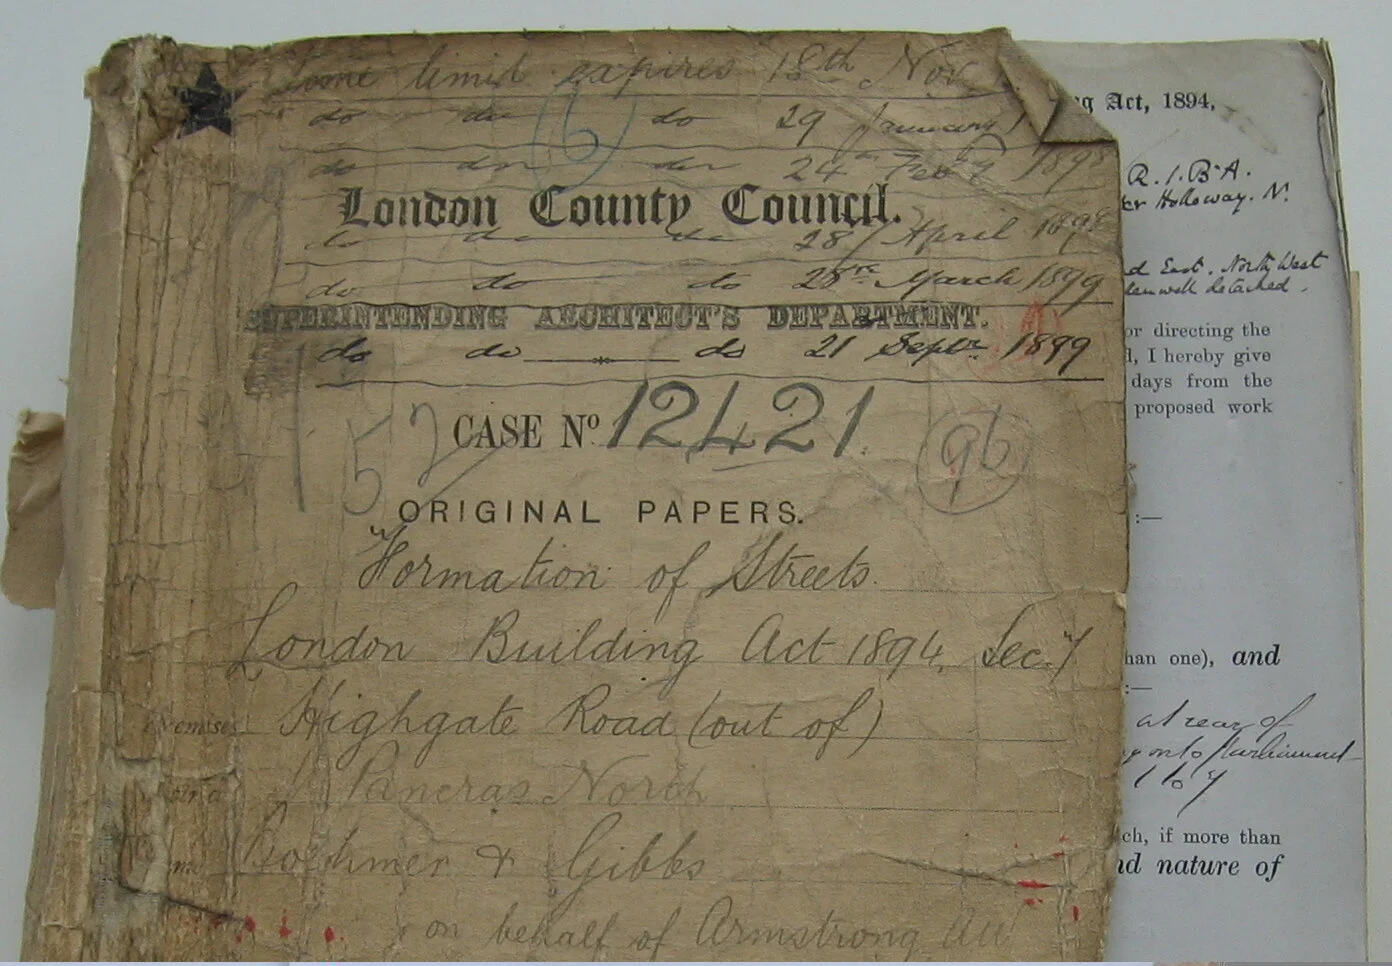 time limit expires 18th Nov
do do do 29 January 1
6
do do do 24th Feby 1898
London County Council.
do do do 28 April 1898
do do do 28th March 1899
SUPERINTENDING ARCHITECT'S DEPARTMENT.
do do do 21 Septr 1899
CASE No 12421
52
96
ORIGINAL PAPERS.
"Formation of Streets
London Building Act 1894, Sec. 7
Premises Highgate Road (out of)
Pancras North
& Gibbs
on behalf of Armstrong
ng Act, 1894,
R.I.B.A.
er Holloway. N.
d East. North West
detached.
or directing the
d, I hereby give
days from the
proposed work
:—
han one), and
:—
at rear of
onto Parliament
1 to 7
ch, if more than
nd nature of